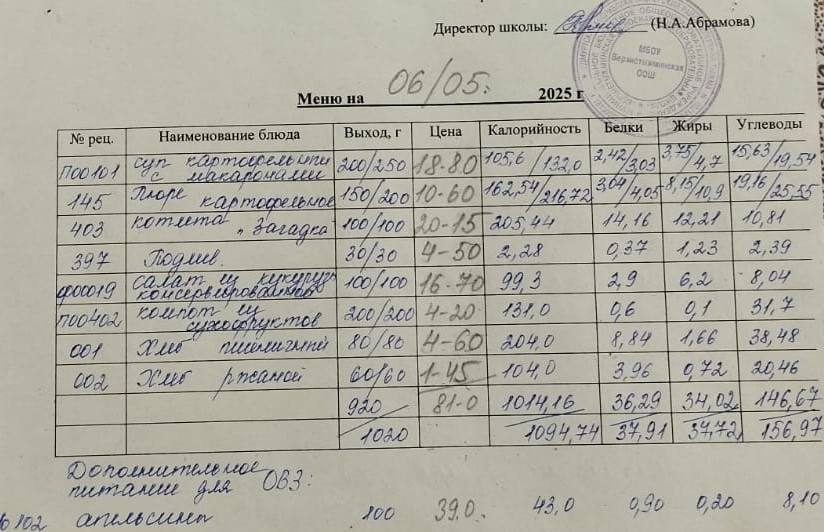 Директор школы: (Н.А.Абрамова)
МБОУ
Верхнетыхминская
СОШ
Меню на 06/05. 2025 г
№ рец. Наименование блюда Выход, г Цена Калорийность Белки Жиры Углеводы
П00101 суп картофельный с макаронами 200/250 18-80 105,6/132,0 2,42/3,03 3,75/4,7 15,63/19,54
145 Пюре картофельное 150/200 10-60 162,54/216,72 3,04/4,05 8,15/10,9 19,16/25,55
403 котлета „Загадка 100/100 20-15 205,44 14,16 12,21 10,81
397 Подлив. 30/30 4-50 2,28 0,37 1,23 2,39
ф00019 салат из кукурузы консервированной 100/100 16-70 99,3 2,9 6,2 8,04
П00402 компот из сухофруктов 200/200 4-20 131,0 0,6 0,1 31,7
001 Хлеб пшеничный 80/80 4-60 204,0 8,84 1,66 38,48
002 Хлеб ржаной 60/60 1-45 104,0 3,96 0,72 20,46
920 81-0 1014,16 36,29 34,02 146,67
1020 1094,74 37,91 37,72 156,97
Дополнительное
питание для ОВЗ:
102 апельсины 100 39.0. 43,0 0,90 0,20 8,10